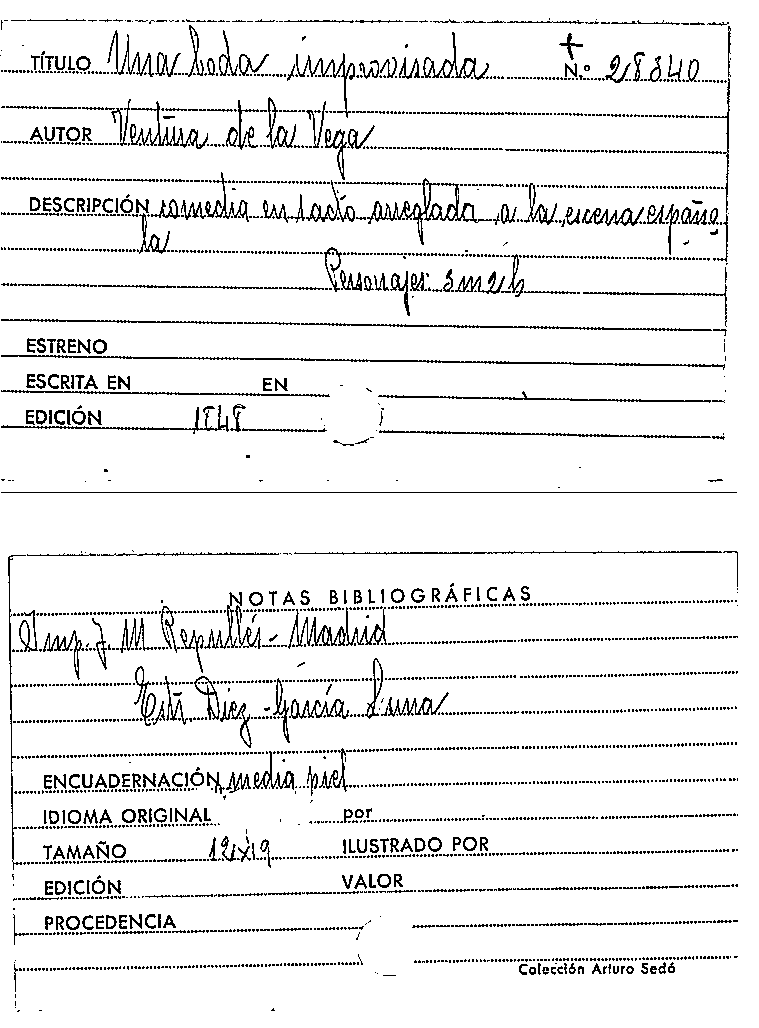 TÍTULO Una boda improvisada + N.º 28340
AUTOR Ventura de la Vega
DESCRIPCIÓN comedia en 1 acto arreglada a la escena españo
la
Personajes: 3m 2h
ESTRENO
ESCRITA EN EN
EDICIÓN 1848
NOTAS BIBLIOGRÁFICAS
Imp. J. M Repullés - Madrid
Diez - García Luna
ENCUADERNACIÓN media piel
IDIOMA ORIGINAL por
TAMAÑO 12x19 ILUSTRADO POR
EDICIÓN VALOR
PROCEDENCIA
Colección Arturo Sedó